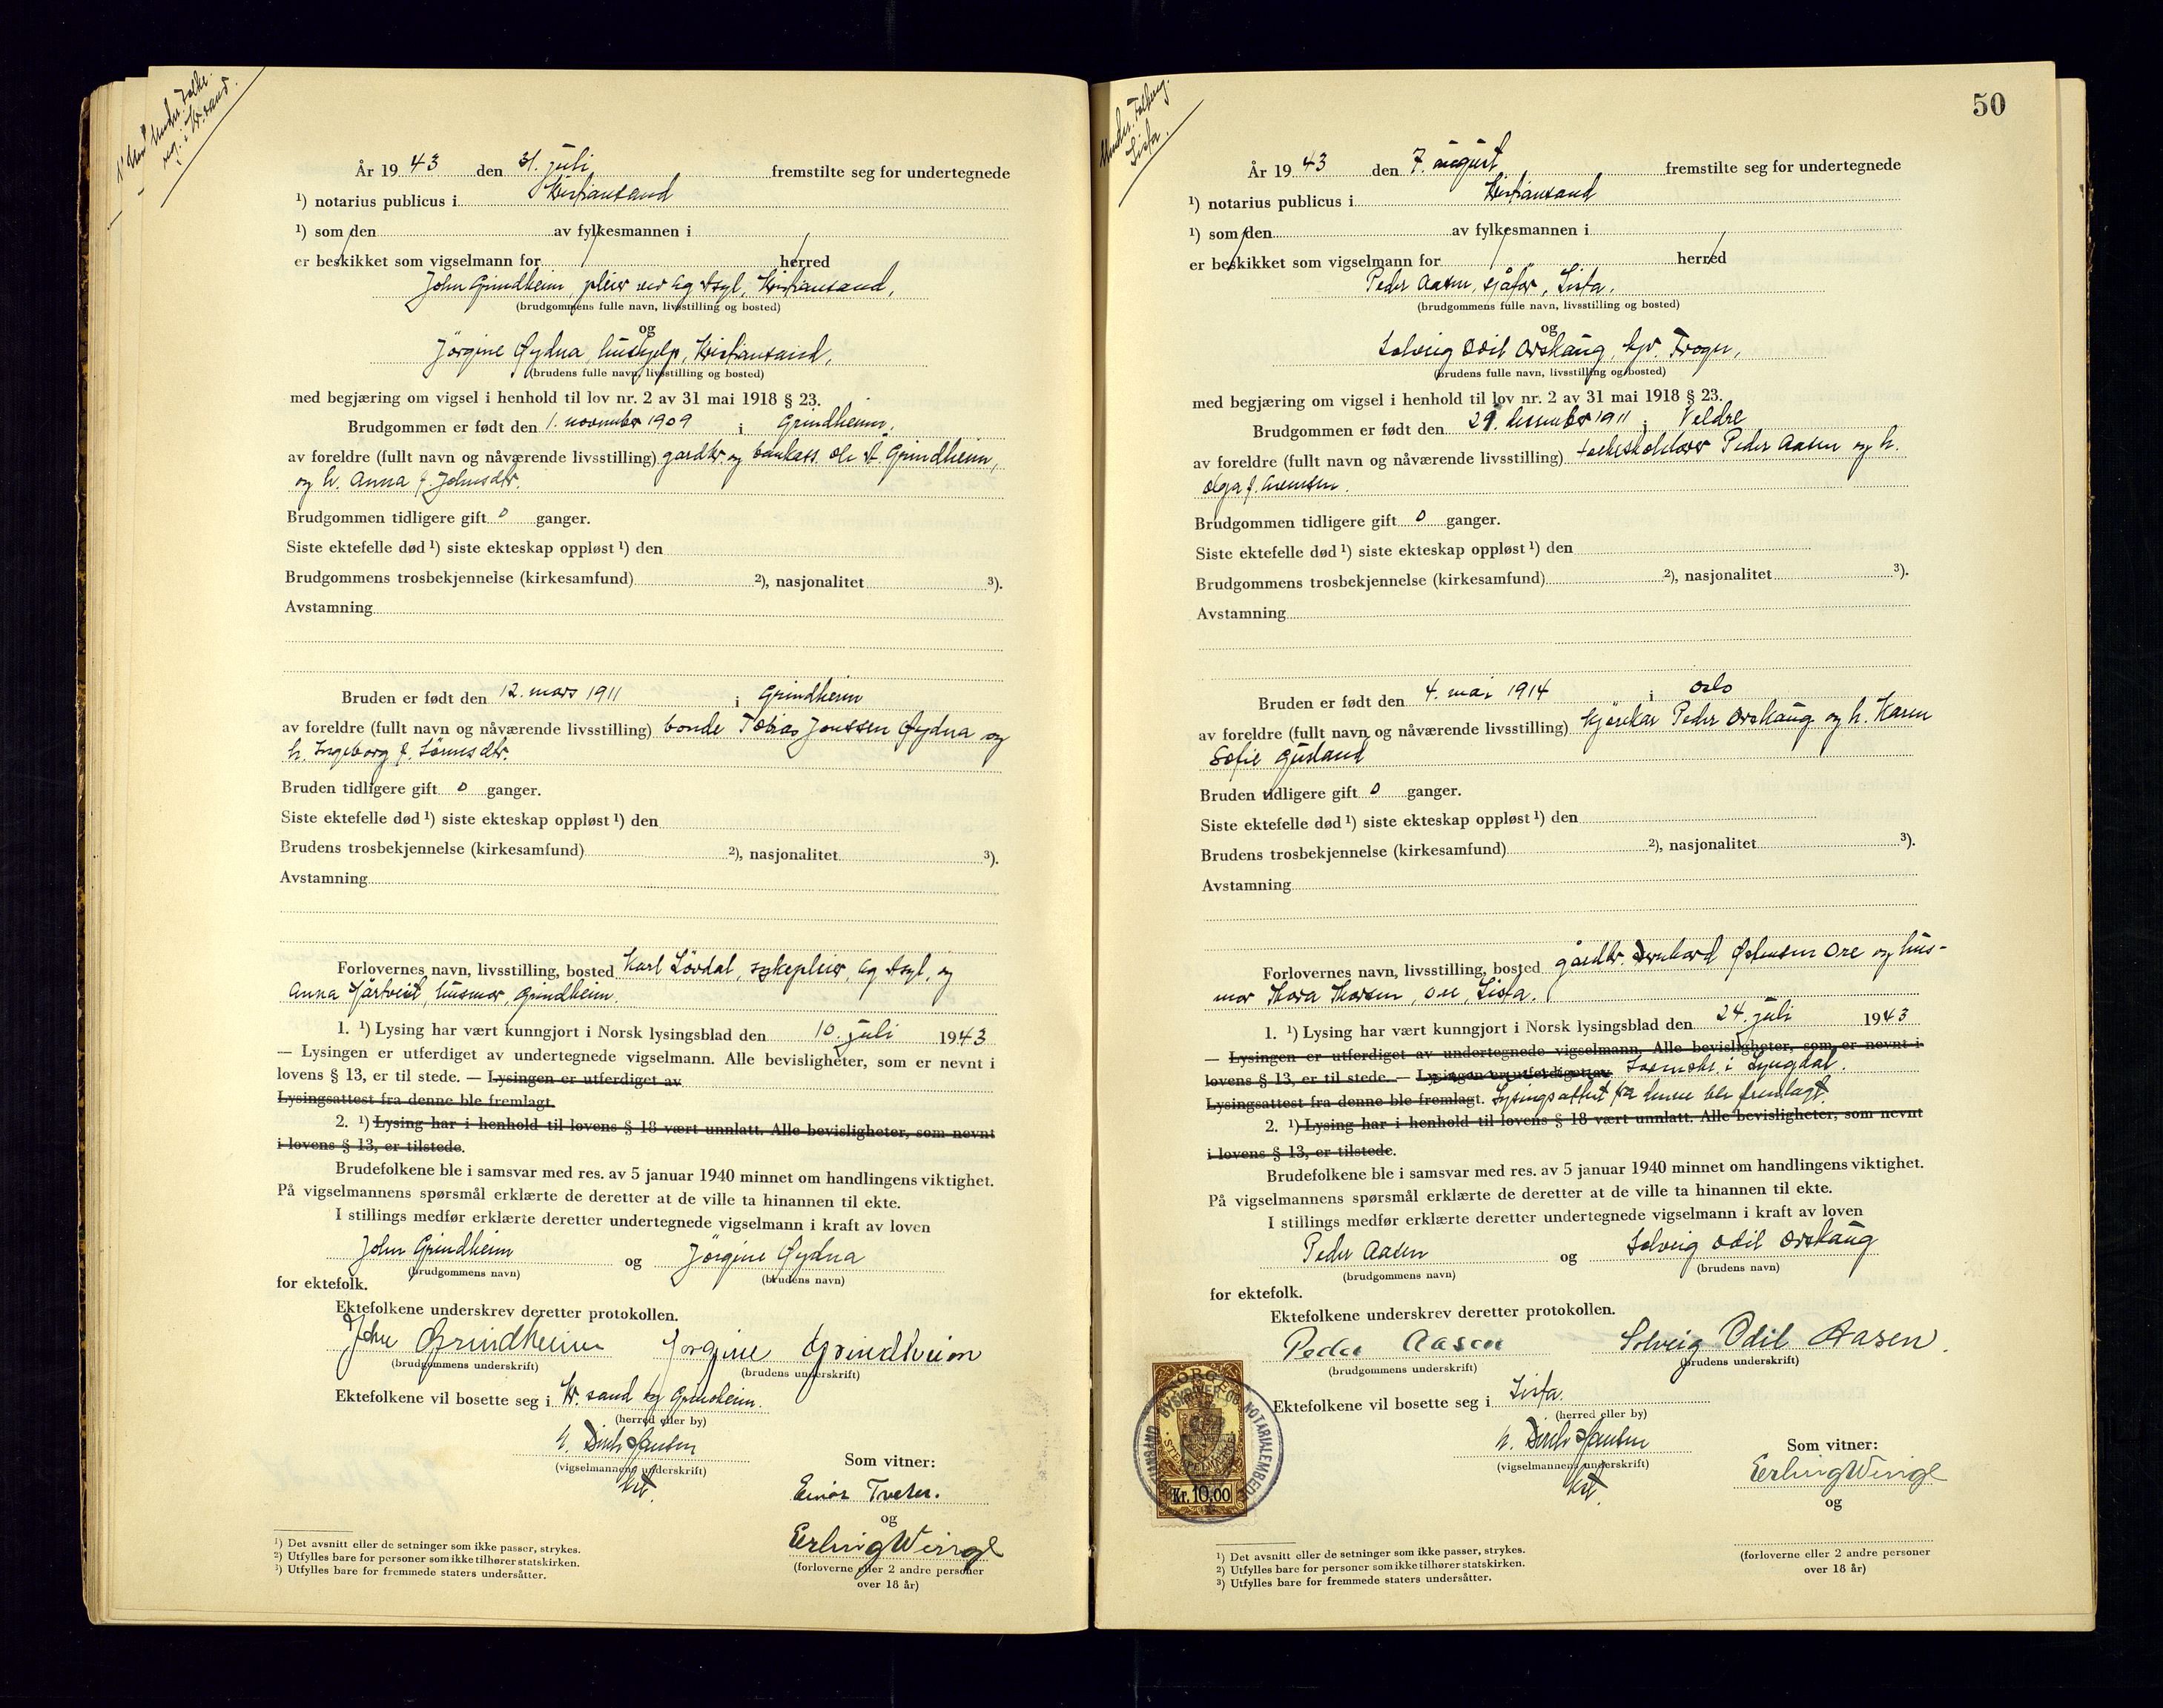 År 1943 den 31. juli fremstilte seg for undertegnede
¹) notarius publicus i Kristiansand
¹) som den av fylkesmannen i
er beskikket som vigselmann for herred
John Grindheim, pleier ved Eg Asyl, Kristiansand,
(brudgommens fulle navn, livsstilling og bosted)
og
Jörgine Øydna, hushjelp, Kristiansand,
(brudens fulle navn, livsstilling og bosted)
med begjæring om vigsel i henhold til lov nr. 2 av 31 mai 1918 § 23.
Brudgommen er født den 1. november 1909 i Grindheim
av foreldre (fullt navn og nåværende livsstilling) gardbr. og bankass. Ole A. Grindheim,
og h. Anna f. Johnsdtr.
Brudgommen tidligere gift 0 ganger.
Siste ektefelle død ¹) siste ekteskap oppløst ¹) den
Brudgommens trosbekjennelse (kirkesamfund) ²), nasjonalitet ³).
Avstamning
Bruden er født den 12. mars 1911 i Grindheim
av foreldre (fullt navn og nåværende livsstilling) bonde Tobias Jonssen Øydna og
h. Ingeborg f. Sörensdtr.
Bruden tidligere gift 0 ganger.
Siste ektefelle død ¹) siste ekteskap oppløst ¹) den
Brudens trosbekjennelse (kirkesamfund) ²), nasjonalitet ³).
Avstamning
Forlovernes navn, livsstilling, bosted Karl Lövdal, sykepleier, Eg Asyl, og
Anna husmor, Grindheim.
1. ¹) Lysing har vært kunngjort i Norsk lysingsblad den 10. juli 1943
— Lysingen er utferdiget av undertegnede vigselmann. Alle bevisligheter, som er nevnt i
lovens § 13, er til stede. — Lysingen er utferdiget av
Lysingsattest fra denne ble fremlagt.
2. ¹) Lysing har i henhold til lovens § 18 vært unnlatt. Alle bevisligheter, som nevnt
i lovens § 13, er tilstede.
Brudefolkene ble i samsvar med res. av 5 januar 1940 minnet om handlingens viktighet.
På vigselmannens spørsmål erklærte de deretter at de ville ta hinannen til ekte.
I stillings medfør erklærte deretter undertegnede vigselmann i kraft av loven
John Grindheim og Jörgine Øydna
(brudgommens navn) (brudens navn)
for ektefolk.
Ektefolkene underskrev deretter protokollen.
John Grindheim Jørgine Grindheim
(brudgommens underskrift) (brudens underskrift)
Ektefolkene vil bosette seg i Kr.sand og Grindheim.
(herred eller by)
(vigselmannens underskrift)
Som vitner:
Einar Tveter.
og
Erling Winge
(forloverne eller 2 andre personer
over 18 år)
¹) Det avsnitt eller de setninger som ikke passer, strykes.
²) Utfylles bare for personer som ikke tilhører statskirken.
³) Utfylles bare for fremmede staters undersåtter.
50
Lista.
År 1943 den 7. august fremstilte seg for undertegnede
¹) notarius publicus i Kristiansand
¹) som den av fylkesmannen i
er beskikket som vigselmann for herred
Peder Aasen, sjåfør, Lista.
(brudgommens fulle navn, livsstilling og bosted)
og
Solveig Odil Orskaug, Frogn,
(brudens fulle navn, livsstilling og bosted)
med begjæring om vigsel i henhold til lov nr. 2 av 31 mai 1918 § 23.
Brudgommen er født den desember 1911 i Veldre
av foreldre (fullt navn og nåværende livsstilling) Peder Aasen og h.
Olga f.
Brudgommen tidligere gift 0 ganger.
Siste ektefelle død ¹) siste ekteskap oppløst ¹) den
Brudgommens trosbekjennelse (kirkesamfund) ²), nasjonalitet ³).
Avstamning
Bruden er født den 4. mai 1914 i Oslo
av foreldre (fullt navn og nåværende livsstilling) kjørekar Peder Orskaug og h. Karen
Sofie
Bruden tidligere gift 0 ganger.
Siste ektefelle død ¹) siste ekteskap oppløst ¹) den
Brudens trosbekjennelse (kirkesamfund) ²), nasjonalitet ³).
Avstamning
Forlovernes navn, livsstilling, bosted gårdbr. Bernhard Østensen Ore og hus-
mor Thora Thorsen, Ore, Lista.
1. ¹) Lysing har vært kunngjort i Norsk lysingsblad den 24. juli 1943
— Lysingen er utferdiget av undertegnede vigselmann. Alle bevisligheter, som er nevnt i
lovens § 13, er til stede. — Lysingen er utferdiget av Sorenskr. i Lyngdal.
Lysingsattest fra denne ble fremlagt. Lysingsattest fra denne ble fremlagt.
2. ¹) Lysing har i henhold til lovens § 18 vært unnlatt. Alle bevisligheter, som nevnt
i lovens § 13, er tilstede.
Brudefolkene ble i samsvar med res. av 5 januar 1940 minnet om handlingens viktighet.
På vigselmannens spørsmål erklærte de deretter at de ville ta hinannen til ekte.
I stillings medfør erklærte deretter undertegnede vigselmann i kraft av loven
Peder Aasen og Solveig Odil Orskaug
(brudgommens navn) (brudens navn)
for ektefolk.
Ektefolkene underskrev deretter protokollen.
Peder Aasen Solveig Odil Aasen.
(brudgommens underskrift) (brudens underskrift)
Ektefolkene vil bosette seg i Lista.
(herred eller by)
(vigselmannens underskrift)
NORGE
Kr. 10.00
Som vitner:
Erling Winge
og
(forloverne eller 2 andre personer
over 18 år)
¹) Det avsnitt eller de setninger som ikke passer, strykes.
²) Utfylles bare for personer som ikke tilhører statskirken.
³) Utfylles bare for fremmede staters undersåtter.